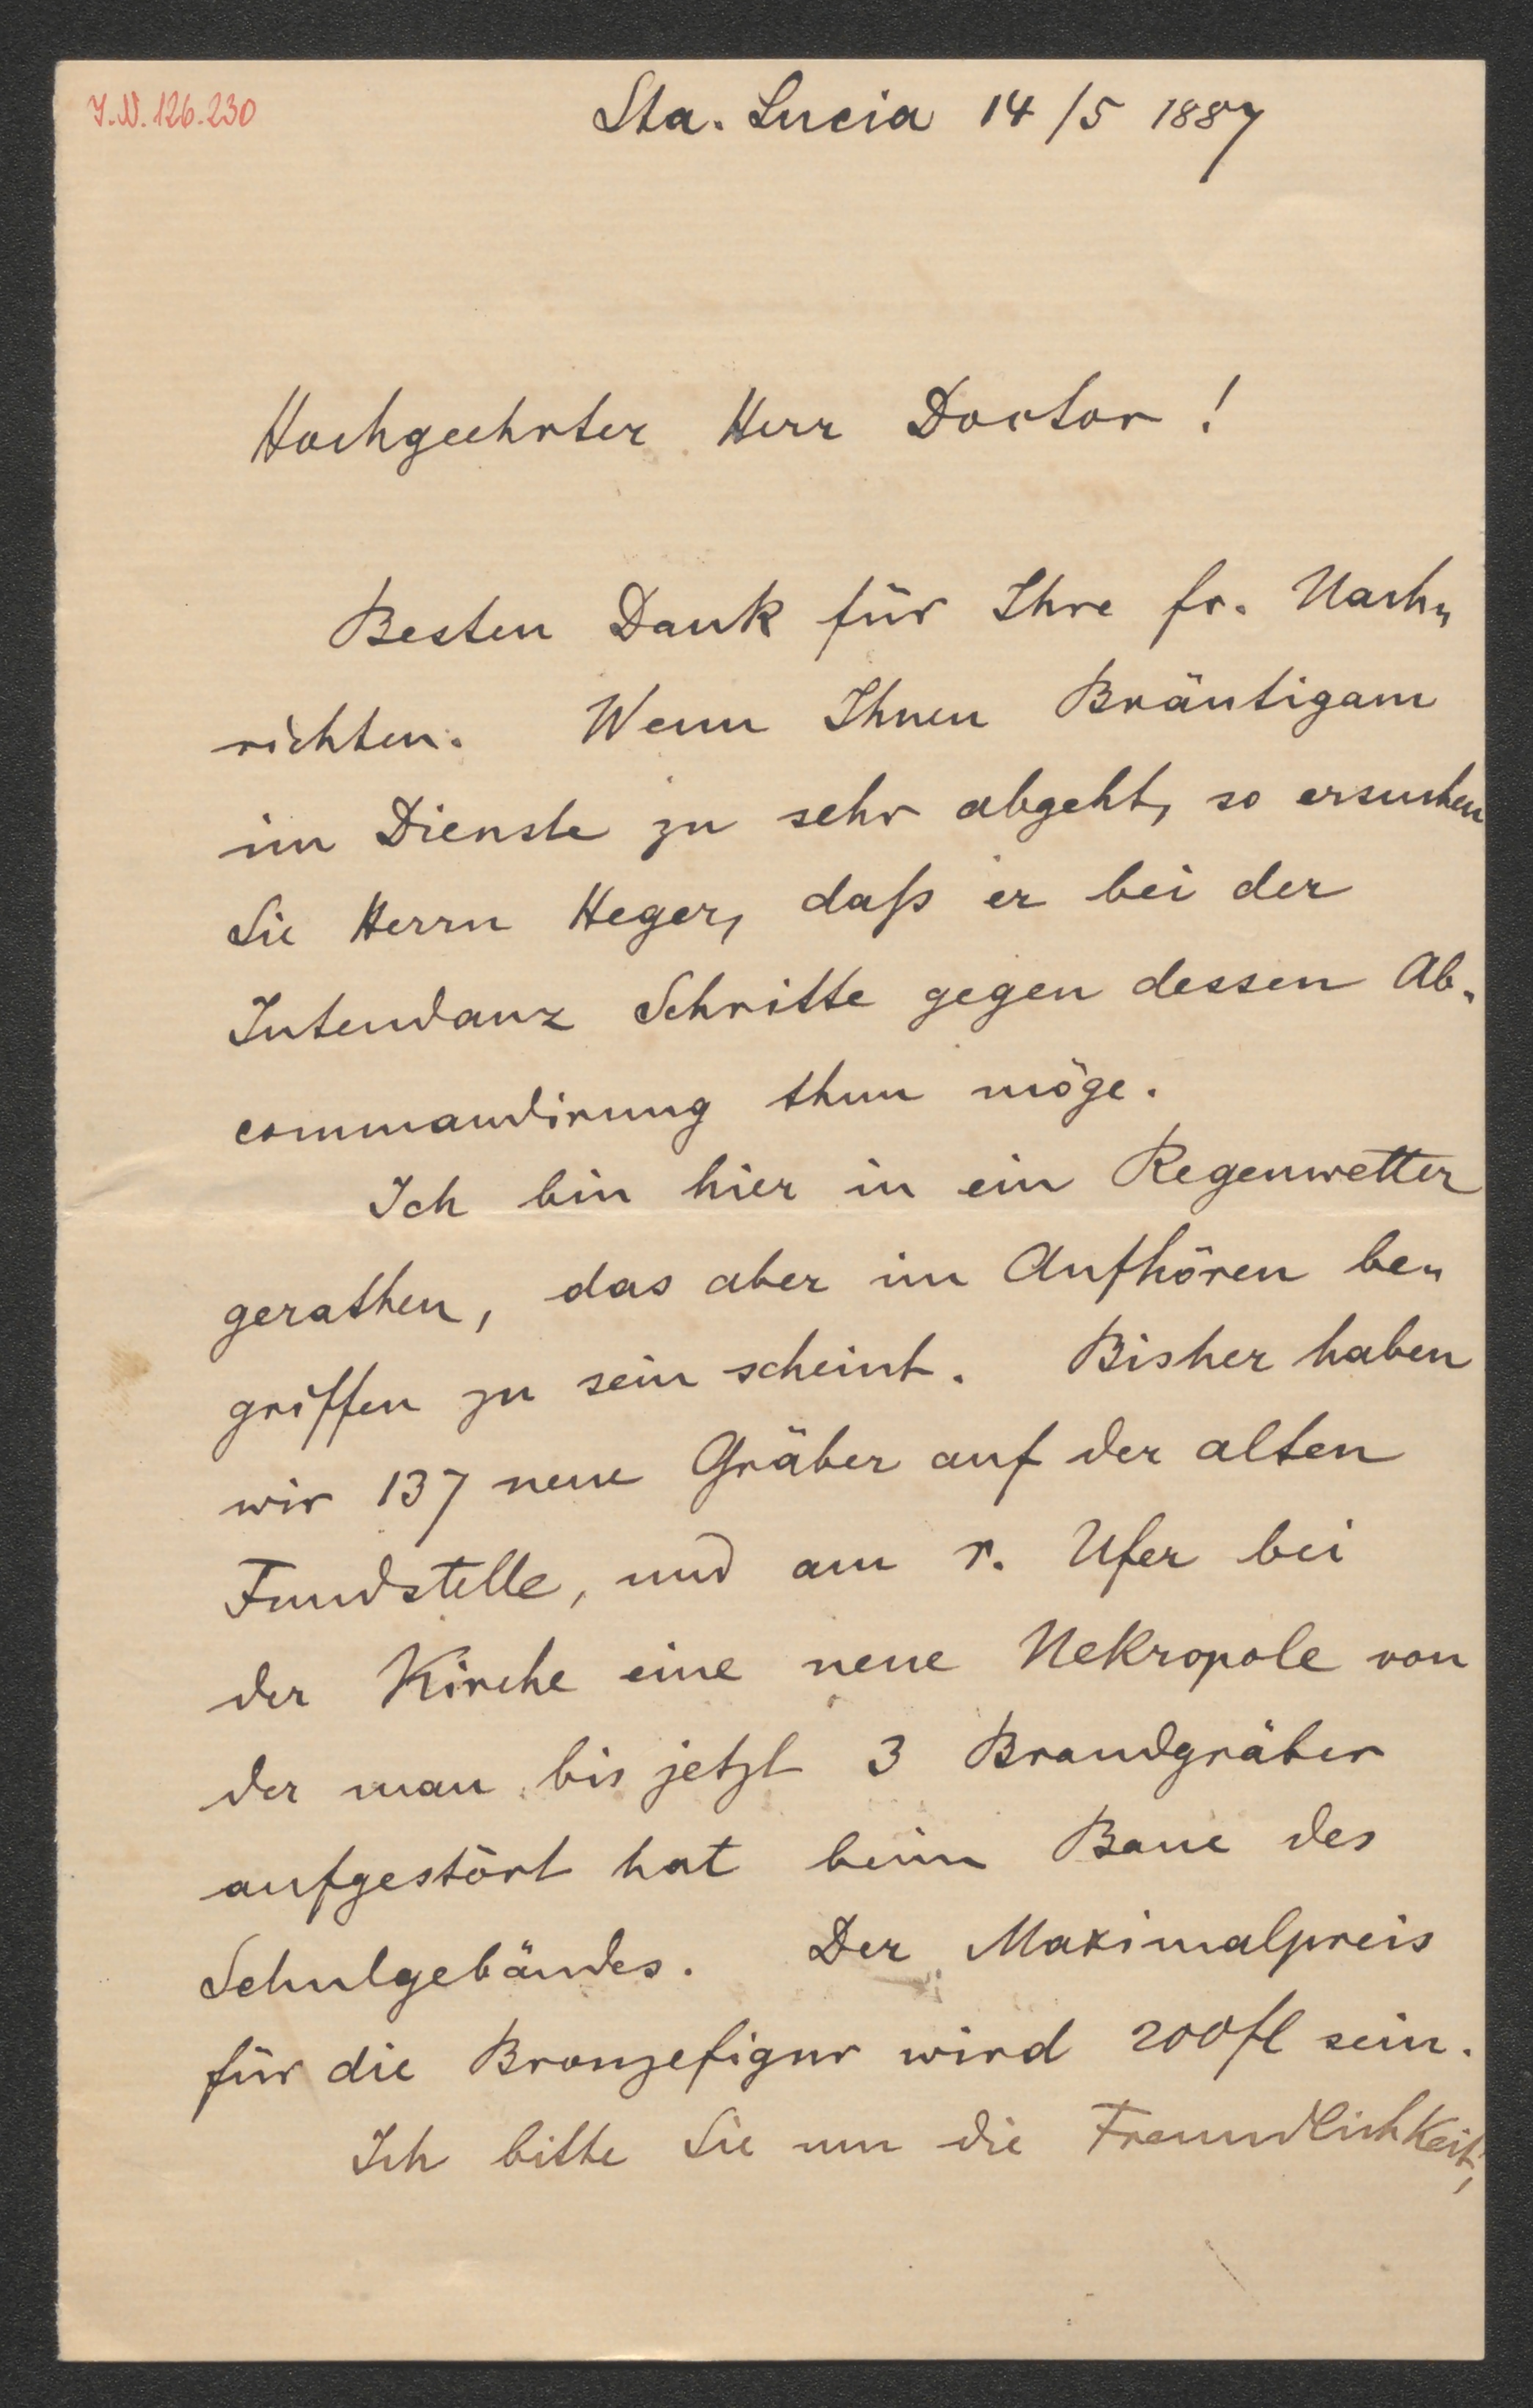 J.N. 126.230
Sta. Lucia 14/5 1887
Hochgeehrter Herr Doctor!
Besten Dank für Ihre fr. Nach„
richten. Wenn Ihnen Bräutigam
im Dienste zu sehr abgeht, so ersuchen
Sie Herrn Heger, daß er bei der
Intendanz Schritte gegen dessen Ab„
commandirung thun möge.
Ich bin hier in ein Regenwetter
gerathen, das aber im Aufhören be„
griffen zu sein scheint. Bisher haben
wir 137 neue Gräber auf der alten
Fundstelle, und am r. Ufer bei
der Kirche eine neue Nekropole von
der man bis jetzt 3 Brandgräber
aufgestört hat beim Baue des
Schulgebäudes. Der Maximalpreis
für die Bronzefigur wird 200fl sein.
Ich bitte Sie um die Freundlichkeit,